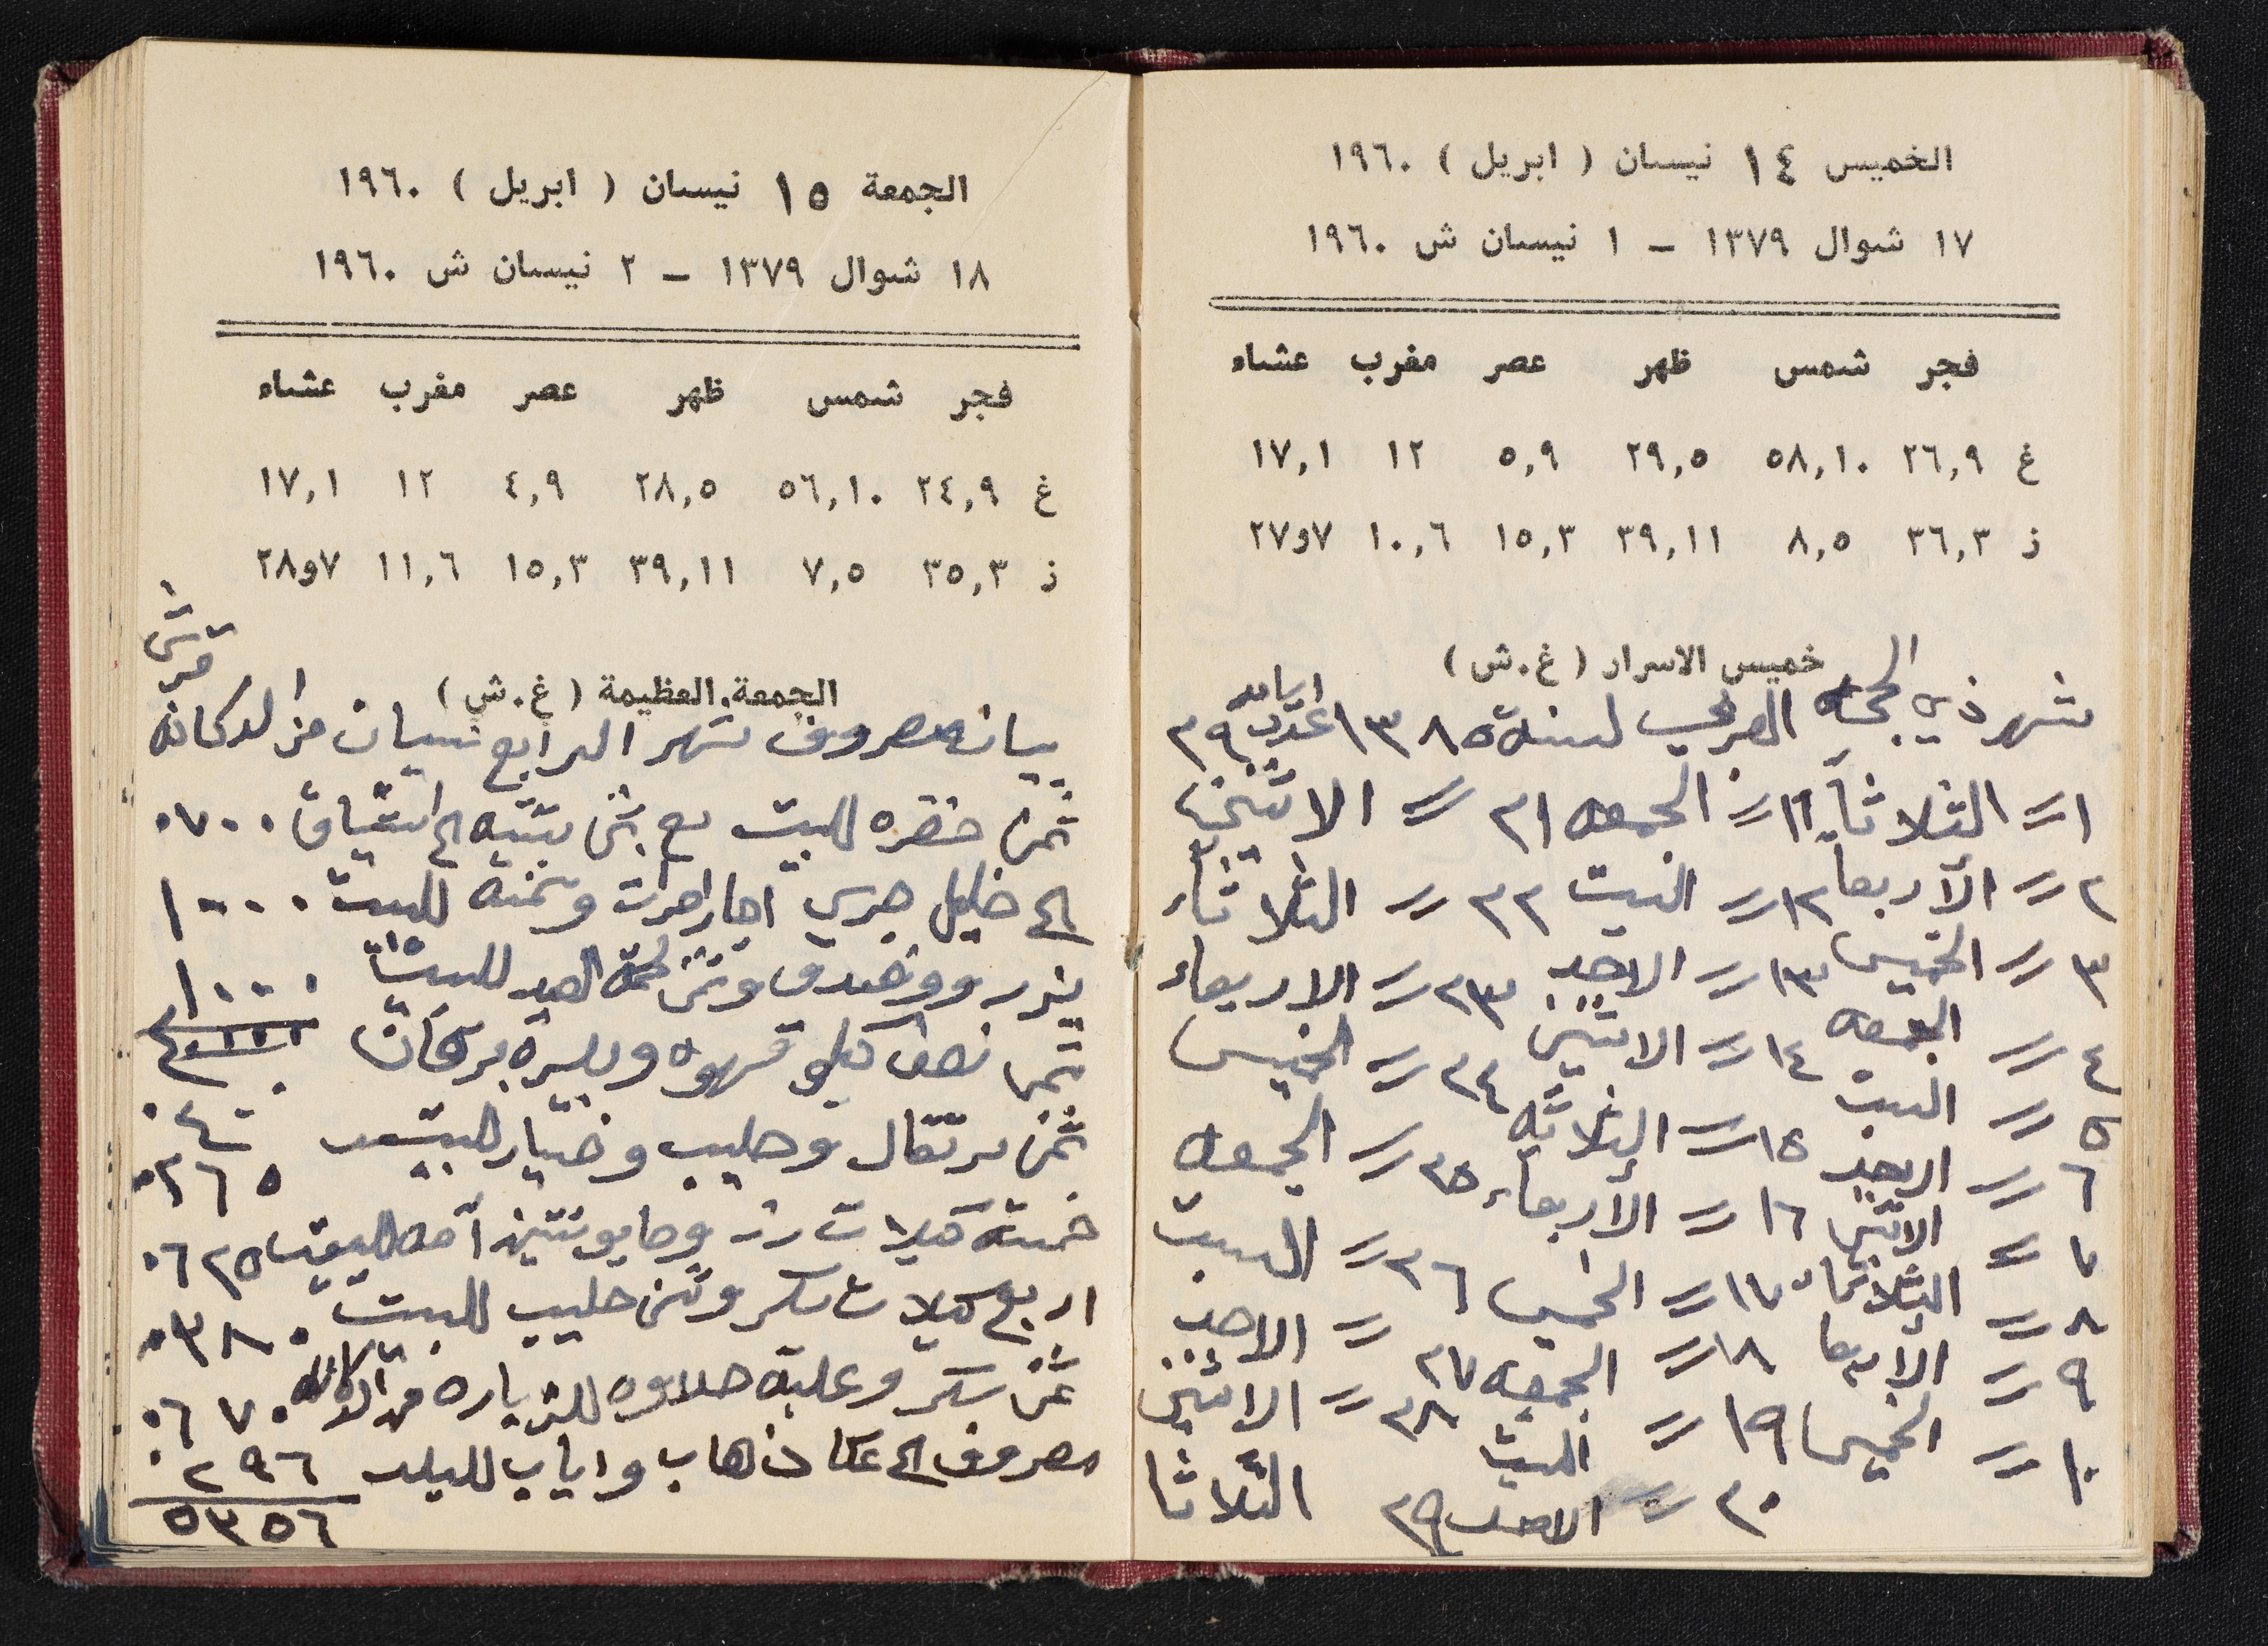 الخميس ١٤ نيسان ( ابريل ) ١٩٦٠
١٧ شوال ١٣٧٩ – ١ نيسان ش ١٩٦٠
فجر شمس ظهر عصر مغرب عشاء
غ ٢٦,٩ ٥٨,١٠ ٢٩,٥ ٥,٩ ١٢ ١٧,١
ز ٣٦,٣ ٨,٥ ٣٩,١١ ١٥,٣ ١٠,٦ ٧و٢٧
خميس الاسرار ( غ.ش )
شهر ذي الحجه العربي لسنة ١٣٨٥ عدد ايامه ٢٩
١ = الثلاثاء ١١ = الجمعه ٢١ = الاثنين
٢ = الأربعاء ١٢ = السبت ٢٢ = الثلاثاء
٣ = الخميس ١٣ = الاحد ٢٣ = الاربعاء
٤ = الجمعه ١٤ = الاثنين ٢٤ = الخميس
٥ = السبت ١٥ = الثلاثه ٢٥ = الجمعه
٦ = الاحد ١٦ = الأربعاء ٢٦ = السبت
٧ = الاثنين ١٧ = الخميس ٢٧ = الاحد
٨ = الثلاثاء ١٨ = الجمعه ٢٨ = الاثنين
٩ = الاربعا ١٩ = السبت ٢٩ الثلاثا
١٠ = الخميس ٢٠ = الاحد
الجمعة ١٥ نيسان ( ابريل ) ١٩٦٠
١٨ شوال ١٣٧٩ – ٢ نيسان ش ١٩٦٠
فجر شمس ظهر عصر مغرب عشاء
غ ٢٤,٩ ٥٦,١٠ ٢٨,٥ ٤,٩ ١٢ ١٧,١
ز ٣٥,٣ ٧,٥ ٣٩,١١ ١٥,٣ ١١,٦ ٧و٢٨
قرش
الجمعة العظيمة ( غ.ش )
بيان مصروف شهر الرابع نيسان من الدكانه
ثمن خضره للبيت مع الى ٠٧٠٠
الى خليل جريس للبيت ١٠٠٠
وثمن لحمة العيد للبيت ١٠٠٠
ثمن نصف كيلو قهوه
ثمن برتقال وحليب وخيار للبيت ٠٢٦٥
خمسة كيلات رز ٠٦٢٥
اربع كيلات سكر وثمن حليب للبيت ٠٣٨٠
ثمن سكر وعلبة حلاوه للزياره من الدكانه ٠٦٧٠
مصروف الى عكا ذهاب واياب للبلد ٢٩٦
٥٣٥٦